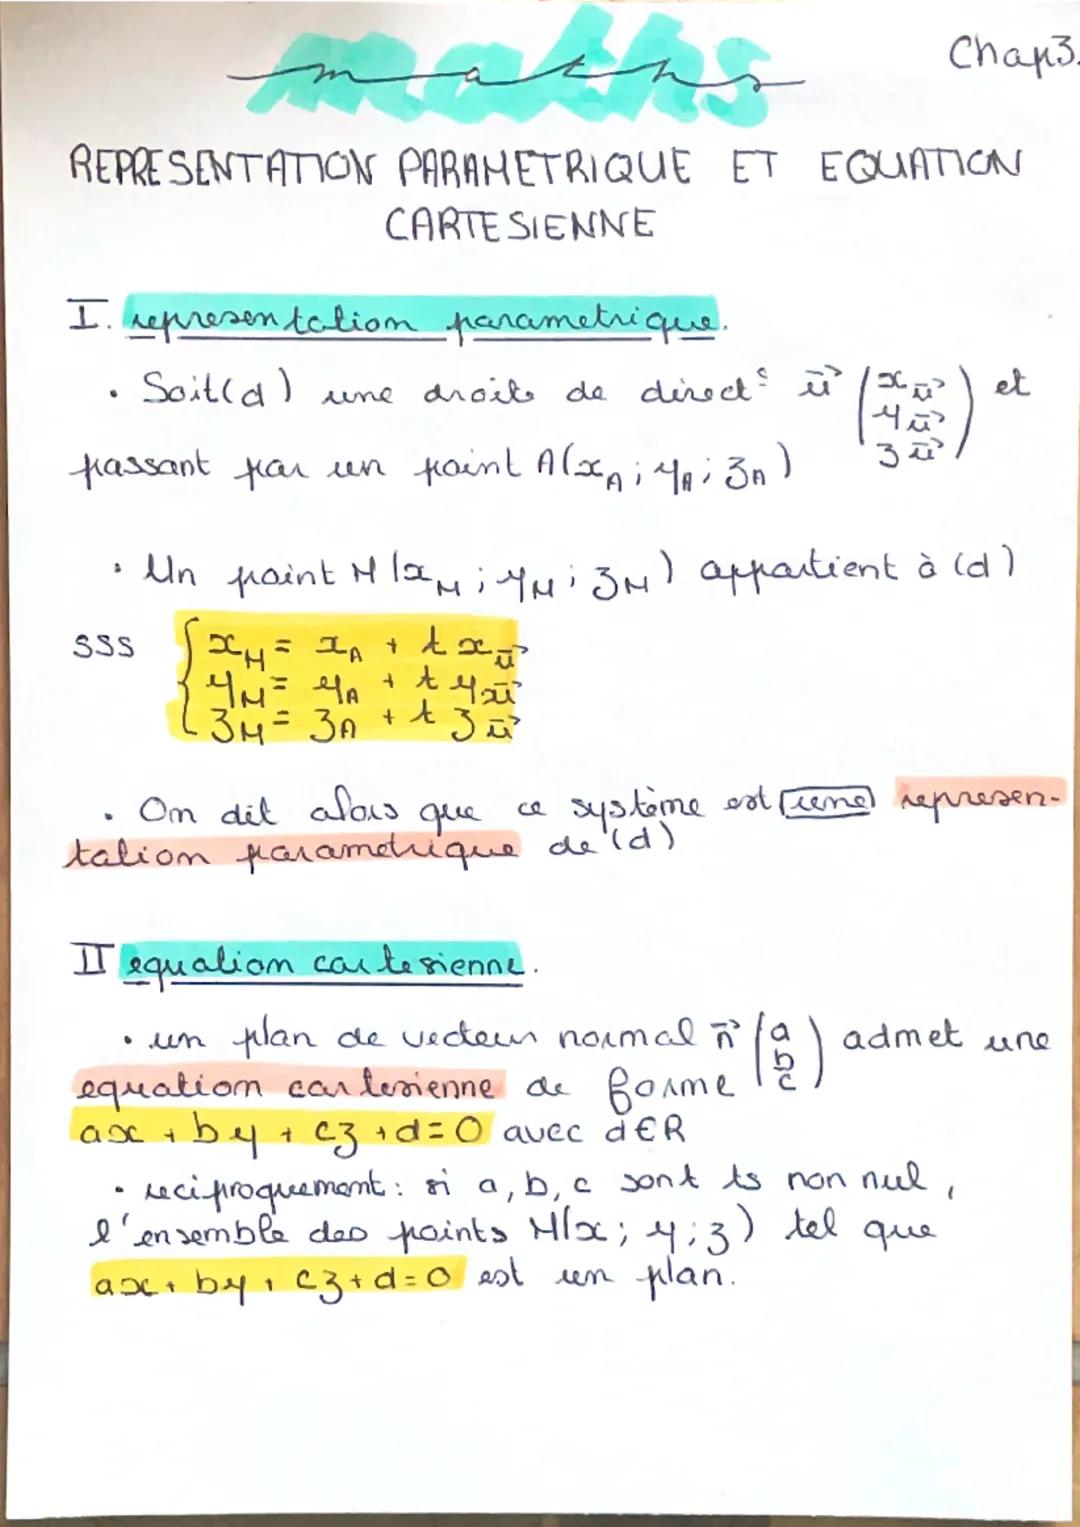 maths
Chap3.
REPRESENTATION PARAMETRIQUE ET EQUATION
CARTESIENNE
I. representation parametrique.
• Soit(d) une droite de direct° u⃗ (x_u⃗ y_u⃗ z_u⃗) et
passant par un point A(x_A ; y_A ; z_A)
• Un point M(x_M ; y_M ; z_M) appartient à (d)
SSS { x_M = x_A + t x_u⃗
y_M = y_A + t y_u⃗
z_M = z_A + t z_u⃗
• On dit alors que ce système est une represen-
tation parametrique de (d)
II equation cartesienne.
• un plan de vecteur normal n⃗ (a b c) admet une
equation cartesienne de forme
ax + by + cz + d = 0 avec d∈R
• reciproquement : si a, b, c sont ts non nul,
l'ensemble des points M(x ; y ; z) tel que
ax + by + cz + d = 0 est un plan.